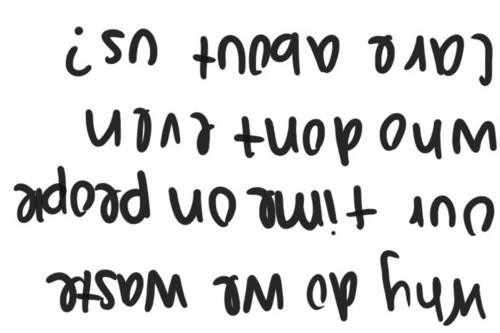 why do we waste
our time on people
who dont even
care about us?